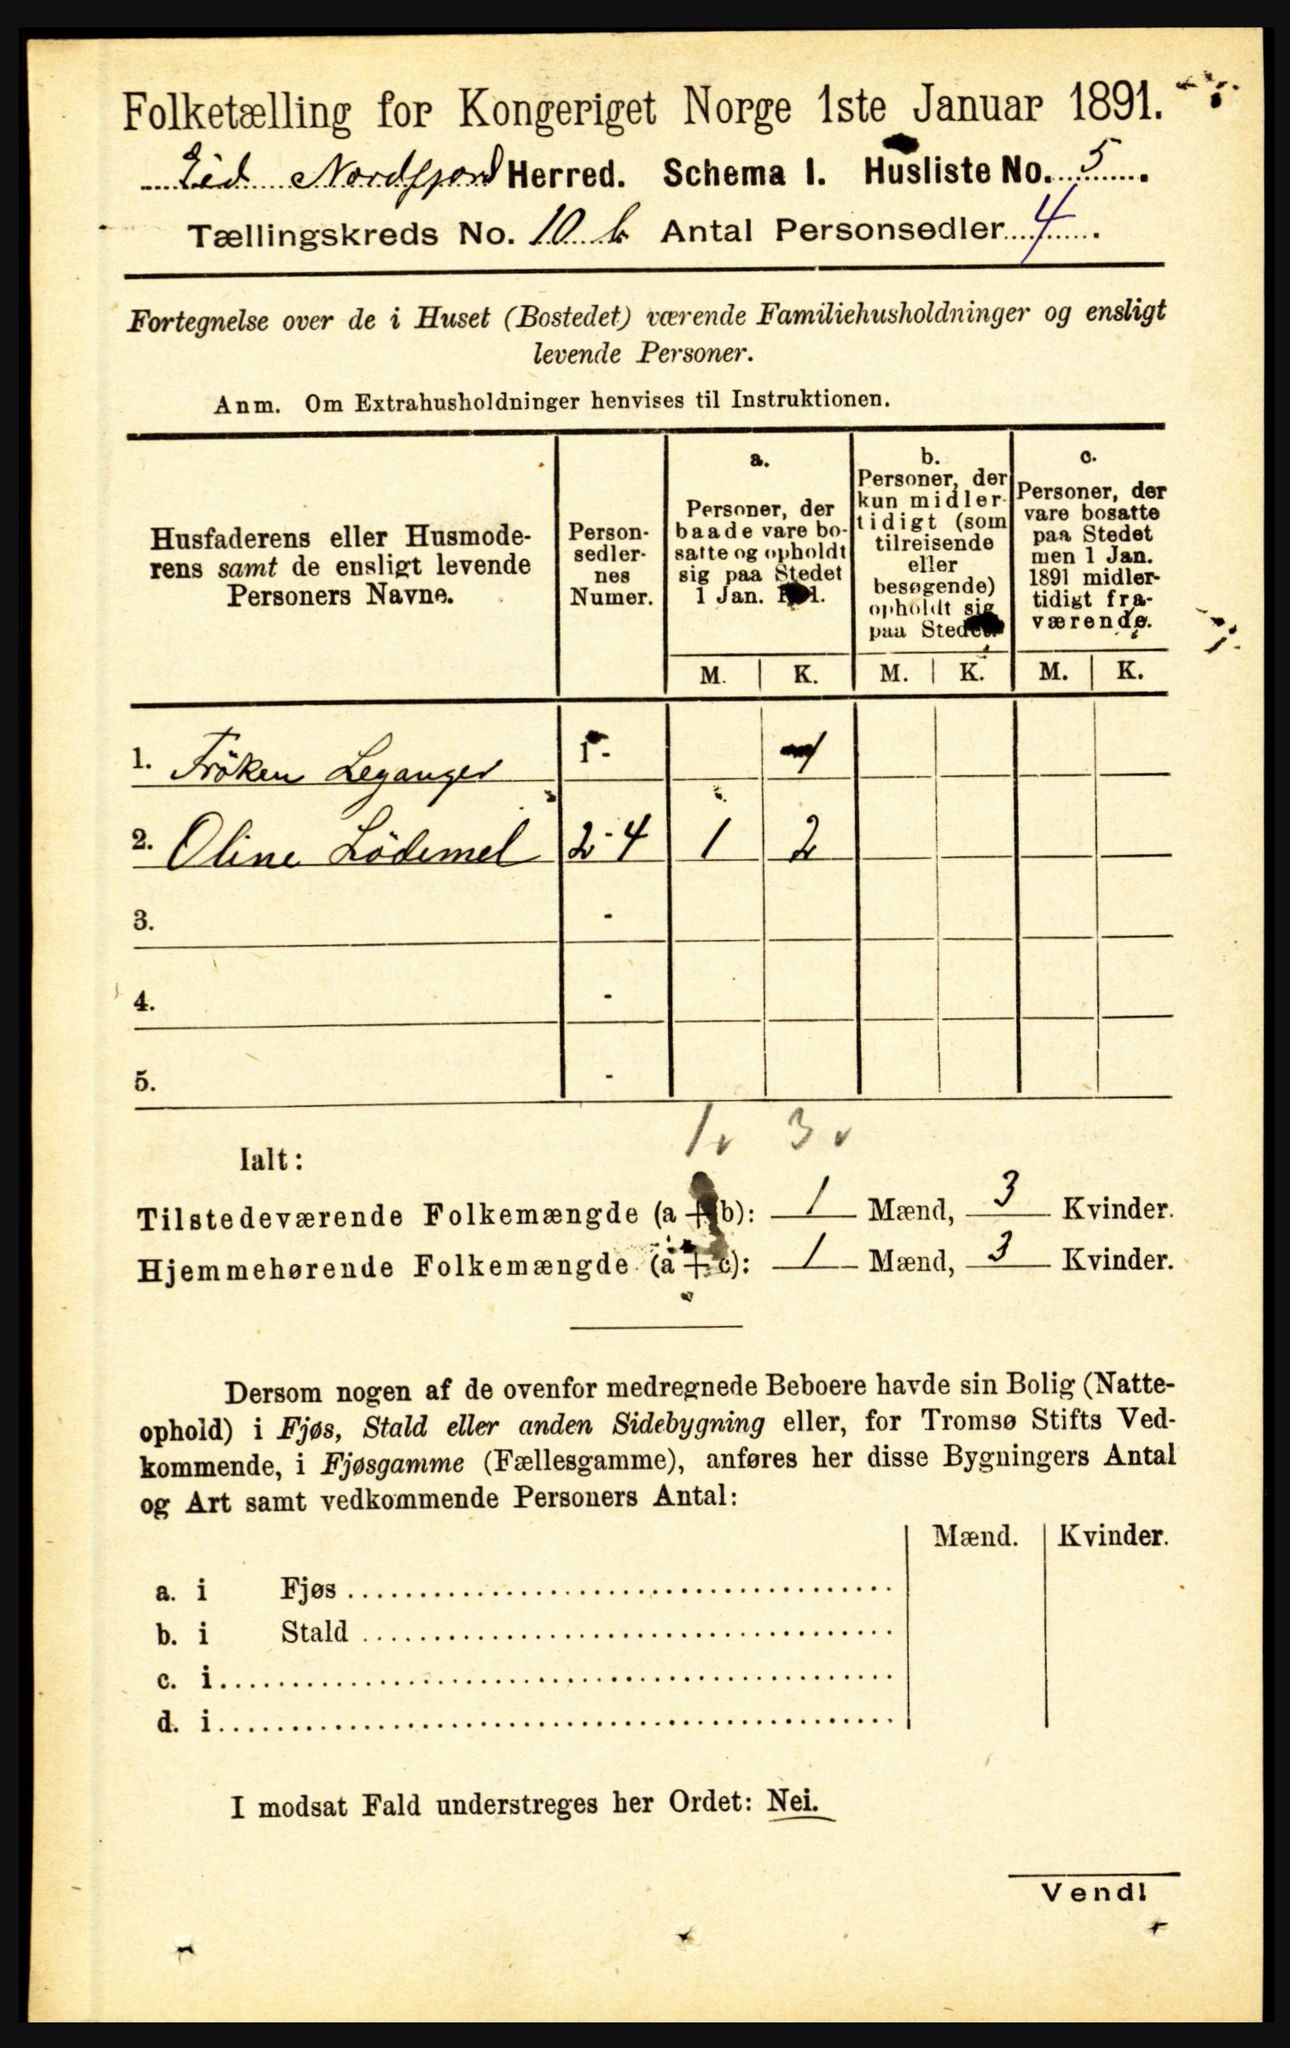 Folketælling for Kongeriget Norge 1ste Januar 1891.
Eid Nordfjord Herred. Schema 1. Husliste No. 5.
Tællingskreds No. 10 b Antal Personsedler 4.
Fortegnelse over de i Huset (Bostedet) værende Familiehusholdninger og ensligt
levende Personer.
Anm. Om Extrahusholdninger henvises til Instruktionen.
Husfaderens eller Husmode-
rens samt de ensligt levende
Personers Navne.
Person-
sedler-
nes
Numer.
a.
Personer, der
baade vare bo-
satte og opholdt
sig paa Stedet
1 Jan. 1891.
b.
Personer, der
kun midler-
tidigt (som
tilreisende
eller
besøgende)
opholdt sig
paa Stedet.
c.
Personer, der
vare bosatte
paa Stedet
men 1 Jan.
1891 midler-
tidigt fra-
værende.
M. K. M. K. M. K.
1. Fröken Leganger 1 - 1
2. Oline Lödemel 2 - 4 1 2
3. -
4. -
5. -
1 v 3 v
Ialt:
Tilstedeværende Folkemængde (a + b): 1 Mænd, 3 Kvinder.
Hjemmehørende Folkemængde (a + c): 1 Mænd, 3 Kvinder.
Dersom nogen af de ovenfor medregnede Beboere havde sin Bolig (Natte-
ophold) i Fjøs, Stald eller anden Sidebygning eller, for Tromsø Stifts Ved-
kommende, i Fjøsgamme (Fællesgamme), anføres her disse Bygningers Antal
og Art samt vedkommende Personers Antal:
Mænd. Kvinder.
a. i Fjøs
b. i Stald
c. i
d. i
I modsat Fald understreges her Ordet: Nei.
Vend!